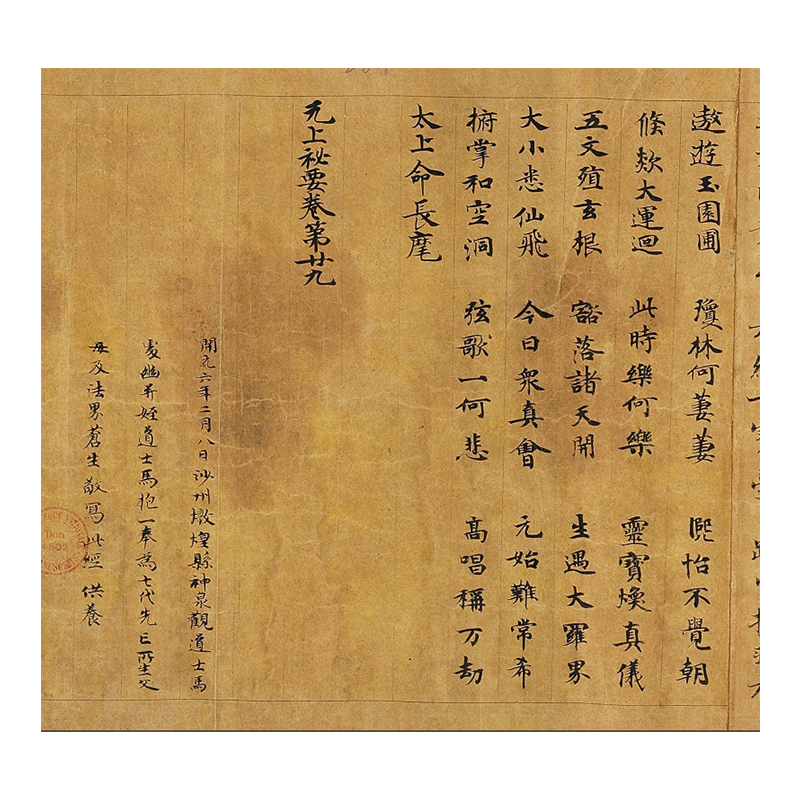 遨遊玉園圃 瓊林何萋萋 熈怡不覺朝
倏欻大運迴 此時樂何樂 靈寶煥真儀
五文殖玄根 豁落諸天開 生遇大羅界
大小悉仙飛 今日衆真會 元始難常希
俯掌和空洞 弦歌一何悲 髙唱稱万劫
太上命長
无上祕要卷第廿九
開元六年二月八日沙州燉煌縣神泉觀道士馬
處幽并姪道士馬抱一奉為七代先亡所生父
母及法界蒼生敬寫此經供養